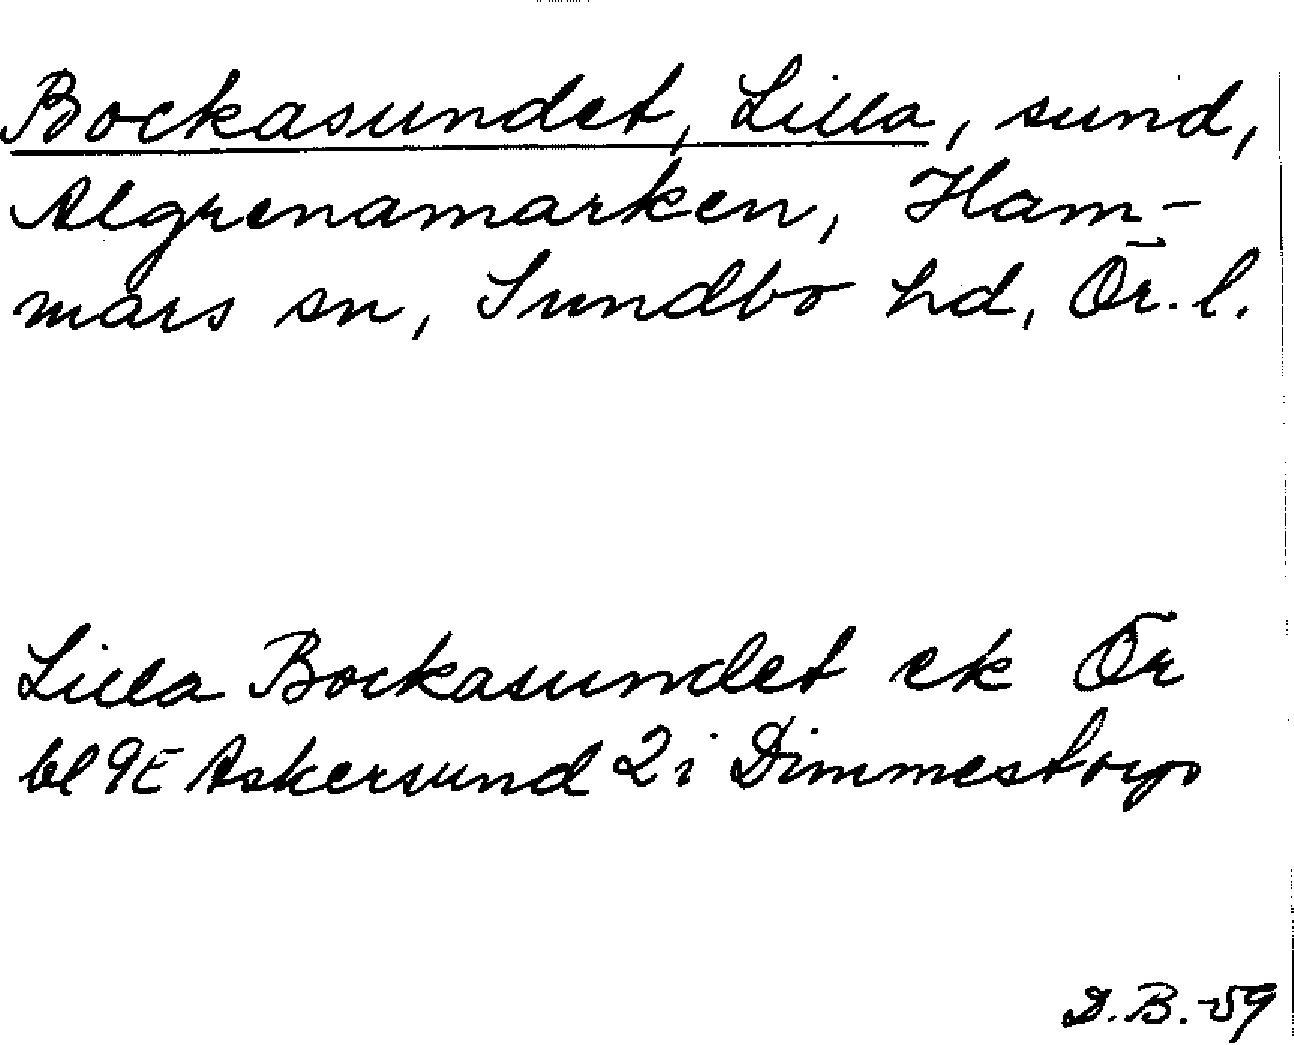 Bockasundet, Lilla, sund,
Algrenamarken, Ham-
mars sn, Sundbo hd, Ör. l.
Lilla Bockasundet ek Ör
bl 9E Askersund 2i Dimmestorp
D.B.-59